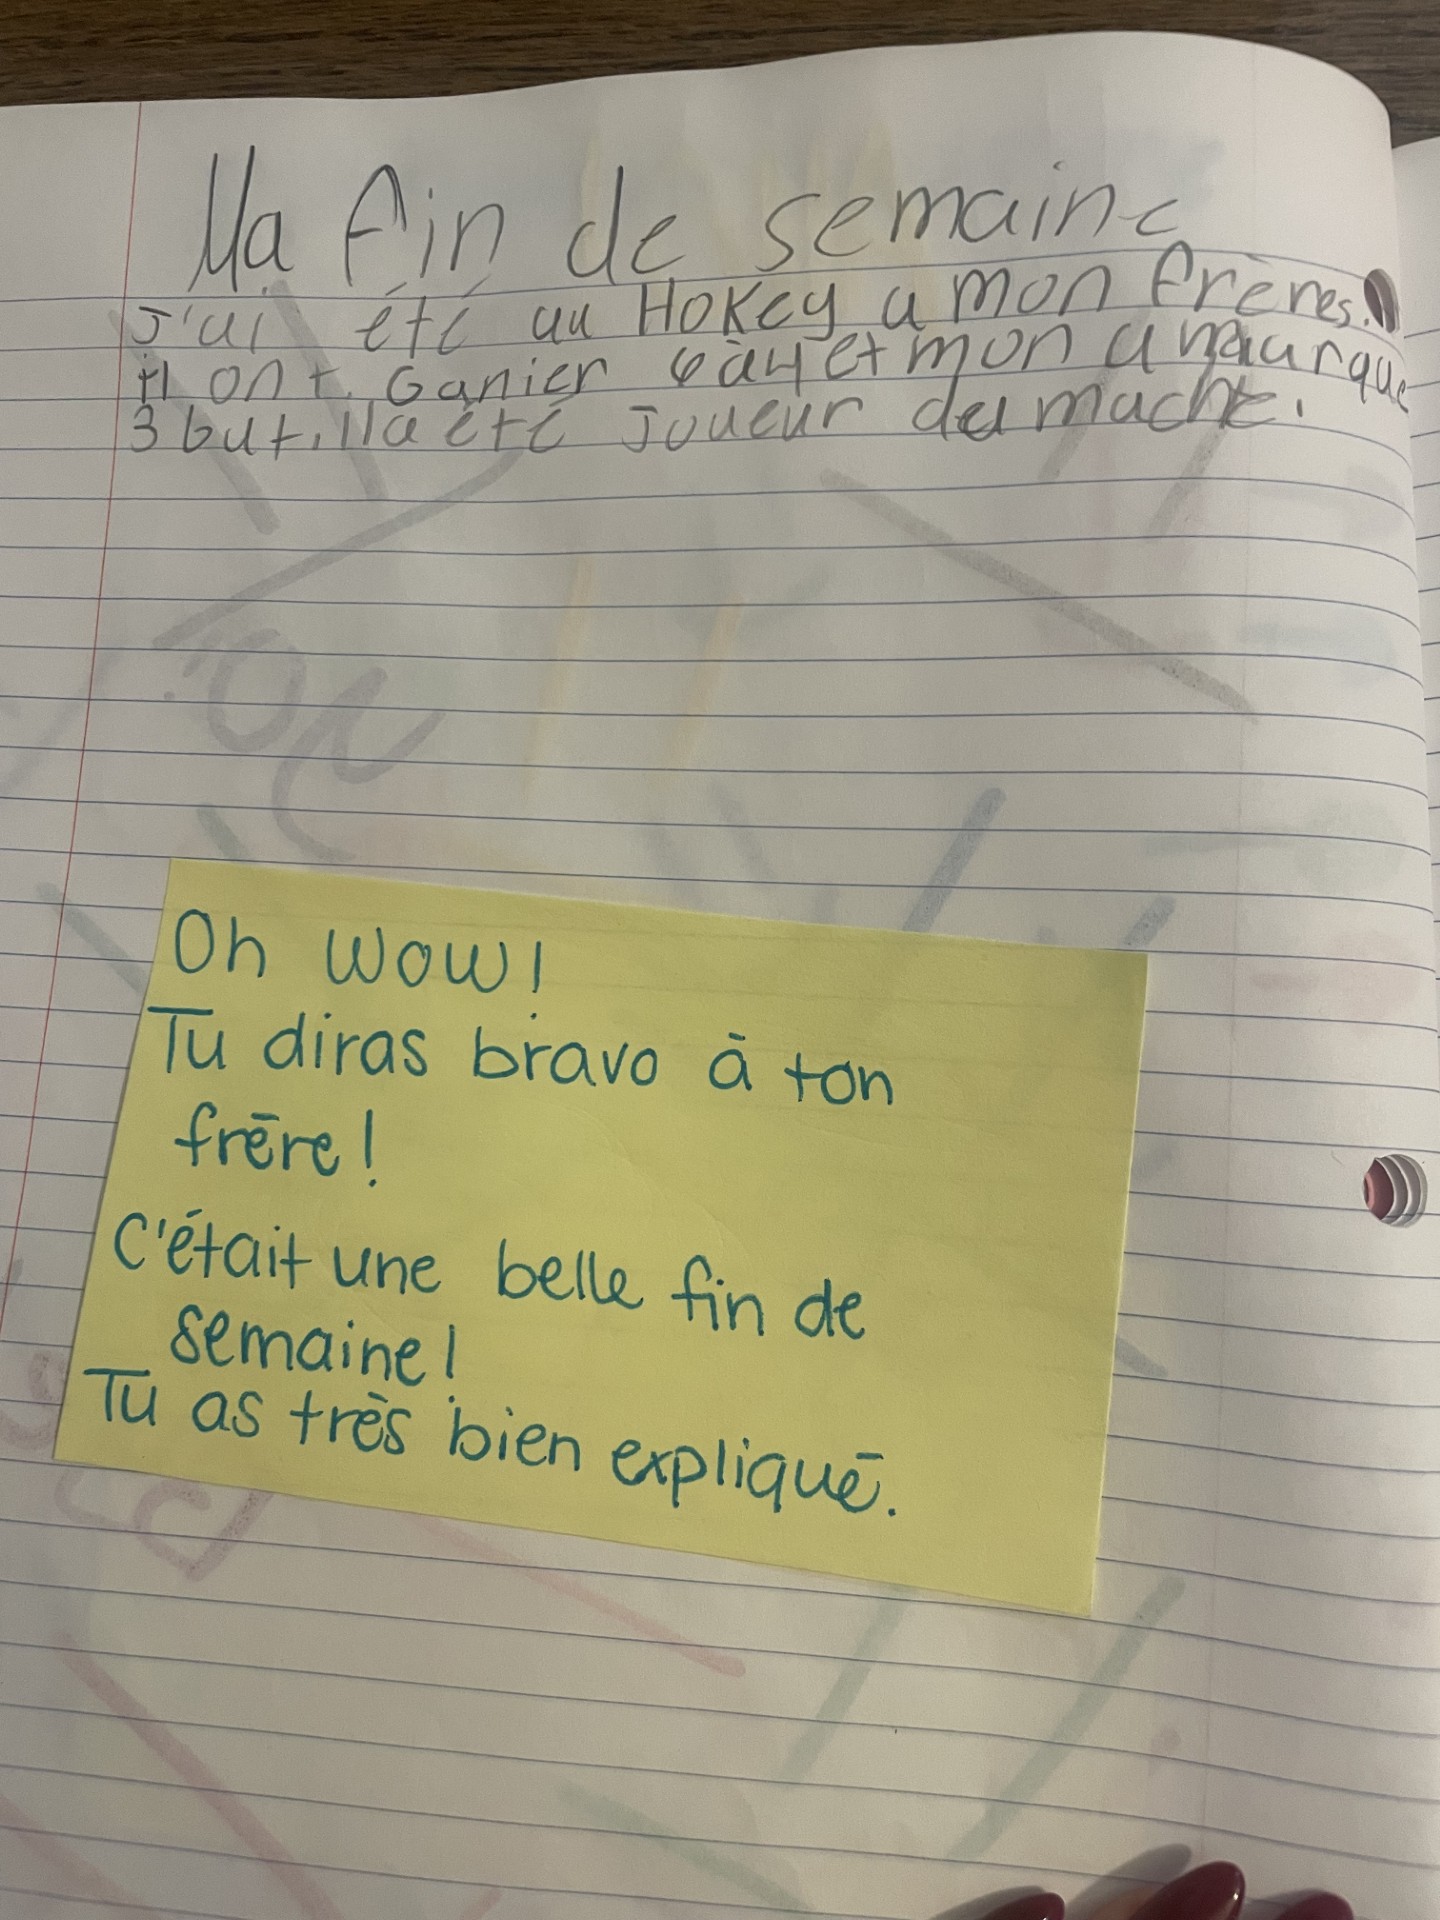 Ma fin de semaine
J'ai été au Hokey a mon frères.
il ont Ganier 6 à 4 et mon a maurque
3 but, il a été Joueur du mache.
Oh wow!
Tu diras bravo à ton
frère!
C'était une belle fin de
semaine!
Tu as très bien expliqué.